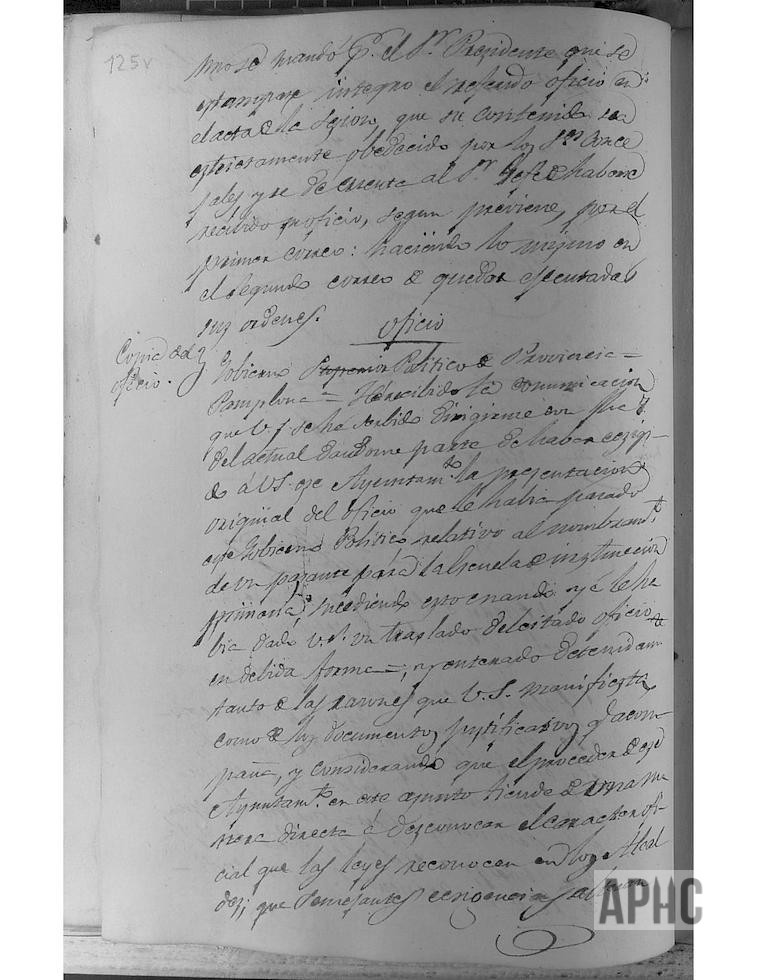 125v
mo se mandó p.r el S.r Presidente que se
estampase integro el referido oficio en
el acta de la sesion, que su contenido sea
estrictamente obedecido por los S.res Conce
jales y se dé cuenta al S.r Gefe de haberse
recibido su oficio, segun previene, por el
primer correo: haciendo lo mismo en
el segundo correo de quedar ejecutadas
sus ordenes.
Oficio
Copia del
oficio.
Gobierno Superior Politico de Provincia =
Pamplona = He recibido la comunicacion
que V. S. se ha servido dirigirme con fha
del actual dandome parte de haber ecsigi-
do á V.S. ese Ayuntam.to la presentacion
original del oficio que le habia pasado
este Gobierno Politico relativo al nombram.to
de un pasante para la Escuela de instruccion
primaria, sucediendo esto cuando ya le ha
bia dado V.S. un traslado del citado oficio
en debida forma =, y enterado detenidam.te
tanto de las razones que V. S. manifiesta
como de los documentos justificativos q.e acom-
paña, y considerando que el proceder de ese
Ayuntam.to en este asunto tiende de una ma
nera directa á desconocer el caracter ofi-
cial que las leyes reconocen en los Alcal
des; que semejantes ecsigencias
APHC